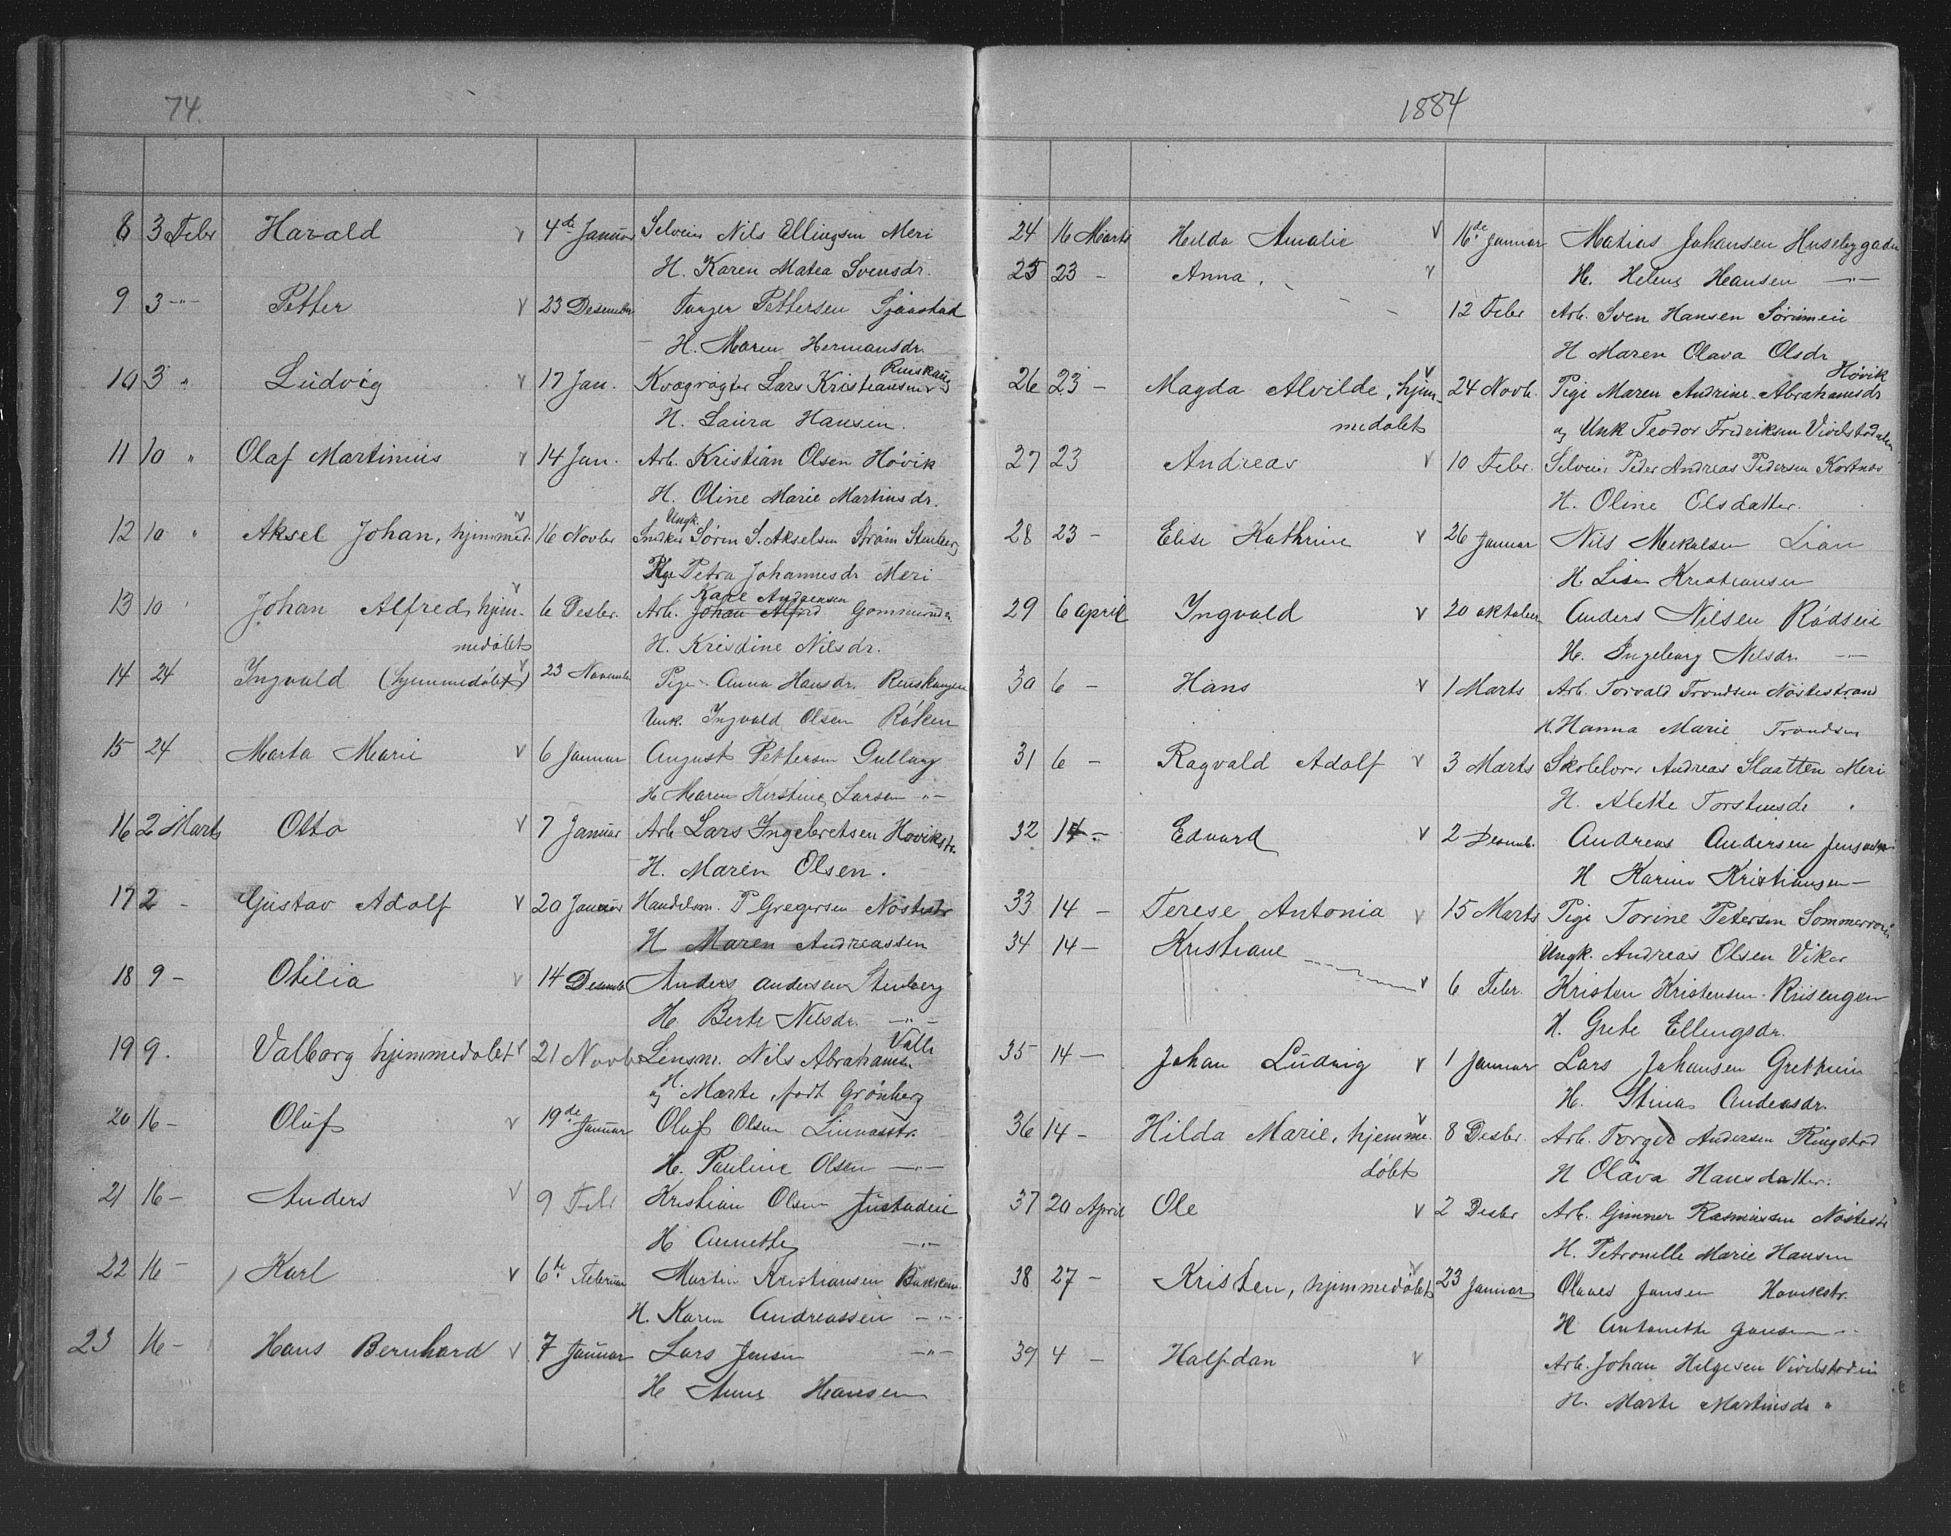 74.
8 3 Febr Harald v 4de Januar Selveier Nils Ellingsen Meri
H. Karen Matea Svensdr.
9 3 -"- Petter v 23 Desember Torger Pettersen Sjaastad
H. Maren Hermansdr.
10 3 " Ludvig v 17 Jan. Kvægrøgter Lars Kristiansen Rinskaug
H. Laura Hansen.
11 10 " Olaf Martinius v 14 Jan. Arb. Kristian Olsen Høvik
H. Oline Marie Martinsdr.
12 10 " Aksel Johan, hjemmed. v 16 Novbr Ungk. Søren S. Akselsen Strøm Stenberg
Pige Petra Johannesdr Meri
13 10 " Johan Alfred, hjem- v 6 Desbr. Arb. Johan Alfred Kare Andreasen
medøbt H. Kristine Nilsdr.
14 24 Ingvald (hjemmedøbt) v 23 November Pige Anna Hansdr.
Unk. Ingvald Olsen Røken
15 24 Marta Marie v 6 Januar August Pettersen Gullaug
H Maren Kirstine Larsen "-
16 2 Marts Otto v 7 Januar Arb Lars Ingebretsen Høvikstr.
H. Maren Olsen.
17 2 - Gustav Adolf v 20 Januar Handelsm. P Gregersen Nøstestr
H Maren Andreassen
18 9 - Otilia v 14 Desemb Anders Andersen Stenberg
H. Berte Nilsdr. -"-
19 9. Valborg hjemmedøbt v 21 Novbr Lensm. Nils Abrahamsen Valle
og H. Marte, født Grønberg
20 16 - Oluf v 19de Januar Oluf Olsen
H. Pauline Olsen -"-
21 16 - Anders v 9 Febr Kristian Olsen
H Annette -"-
22 16 - Karl v 6te Februar Martin Kristiansen
H. Karen Andreassen -"-
23 16 - Hans Bernhard v 7 Januar Lars Jensen -"-
H Anne Hansen
1884
24 16 Marts Hilda Amalie v 16de Januar Matias Johansen Husebygaden
25 23 - Anna. v H. Helene Hansen -"-
12 Febr Arb. Sven Hansen
H Maren Olava Olsdr
26 23 - Magda Alvilde, hjem- v 24 Novb. Pige Maren Andrine Abrahamsdr Høvik
medøbt og Unk Teodor Fredriksen Vivelstadalen
27 23 Andreas v 10 Febr. Selveier Peder Andreas Pedersen
H. Oline Olsdatter.
28 23 - Elise Kathrine v 26 Januar Nils Mekalsen Lian
H Lise Kristiansen
29 6 April Ingvald v 20 oktober Anders Nilsen Rødseie
H. Ingeborg Nilsdr. -"-
30 6 - Hans v 1 Marts Arb. Torvald Trondsen Nøstestrand
H. Hanna Marie Trondsen
31 6 - Ragvald Adolf v 3 Marts Skolelærer Andreas Slaatten Meri
H. Alette Torstensdr "
32 14 - Edvard v 2 Desemb. Andreas Andersen
H Karine Kristiansen -
33 14 - Terese Antonia v 15 Marts Pige Torine Petersen
34 14 - Kristiane Ungk. Andreas Olsen Viker
v 6 Febr. Kristen Kristensen Risengen
H. Grete Ellingsdr.
35 14 - Johan Ludvig v 1 Januar Lars Johansen
H. Stina Andeasdr.
36 14 - Hilda Marie, hjemme- v 8 Desbr. Arb. Torger Andersen Ringstad
døbt H Olava Hansdatter.
37 20 April Ole v 2 Desbr Arb. Gunner Rasmussen Nøstestr
H. Petronelle Marie Hansen
38 27 - Kristen, hjemmedøbt v 23 Januar Olaves Jansen Høvikstr.
H Antonette Jansen -"-
39 4 - Halfdan v Arb. Johan Helgesen
H. Marte Martinsdr "